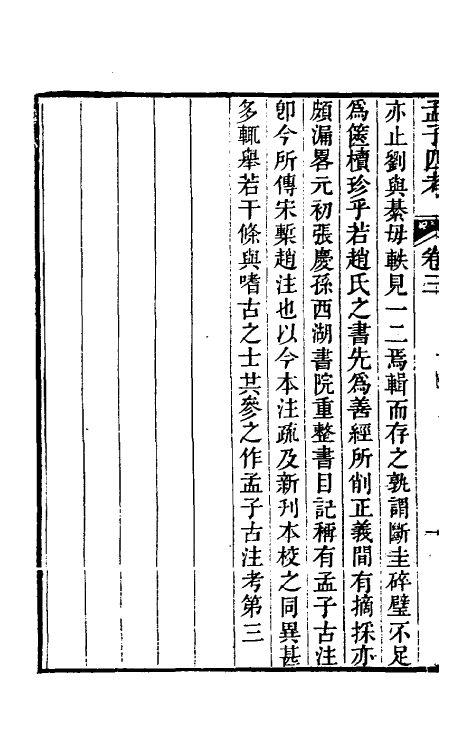 孟子四考 卷三
亦止劉與綦毋軼見一二焉輯而存之孰謂斷圭碎璧不足
為篋櫝珍乎若趙氏之書先為善經所削正義間有摘採亦
頗漏畧元初張慶孫西湖書院重整書目記稱有孟子古注
卽今所傳宋槧趙注也以今本注疏及新刊本校之同異甚
多輒舉若干條與嗜古之士共參之作孟子古注考第三